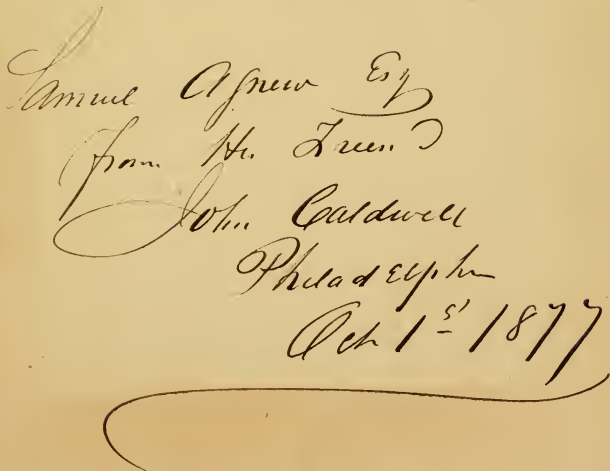 Samuel Agnew Esq
from His Friend
John Caldwell
Philadelphia
Oct 1st 1877